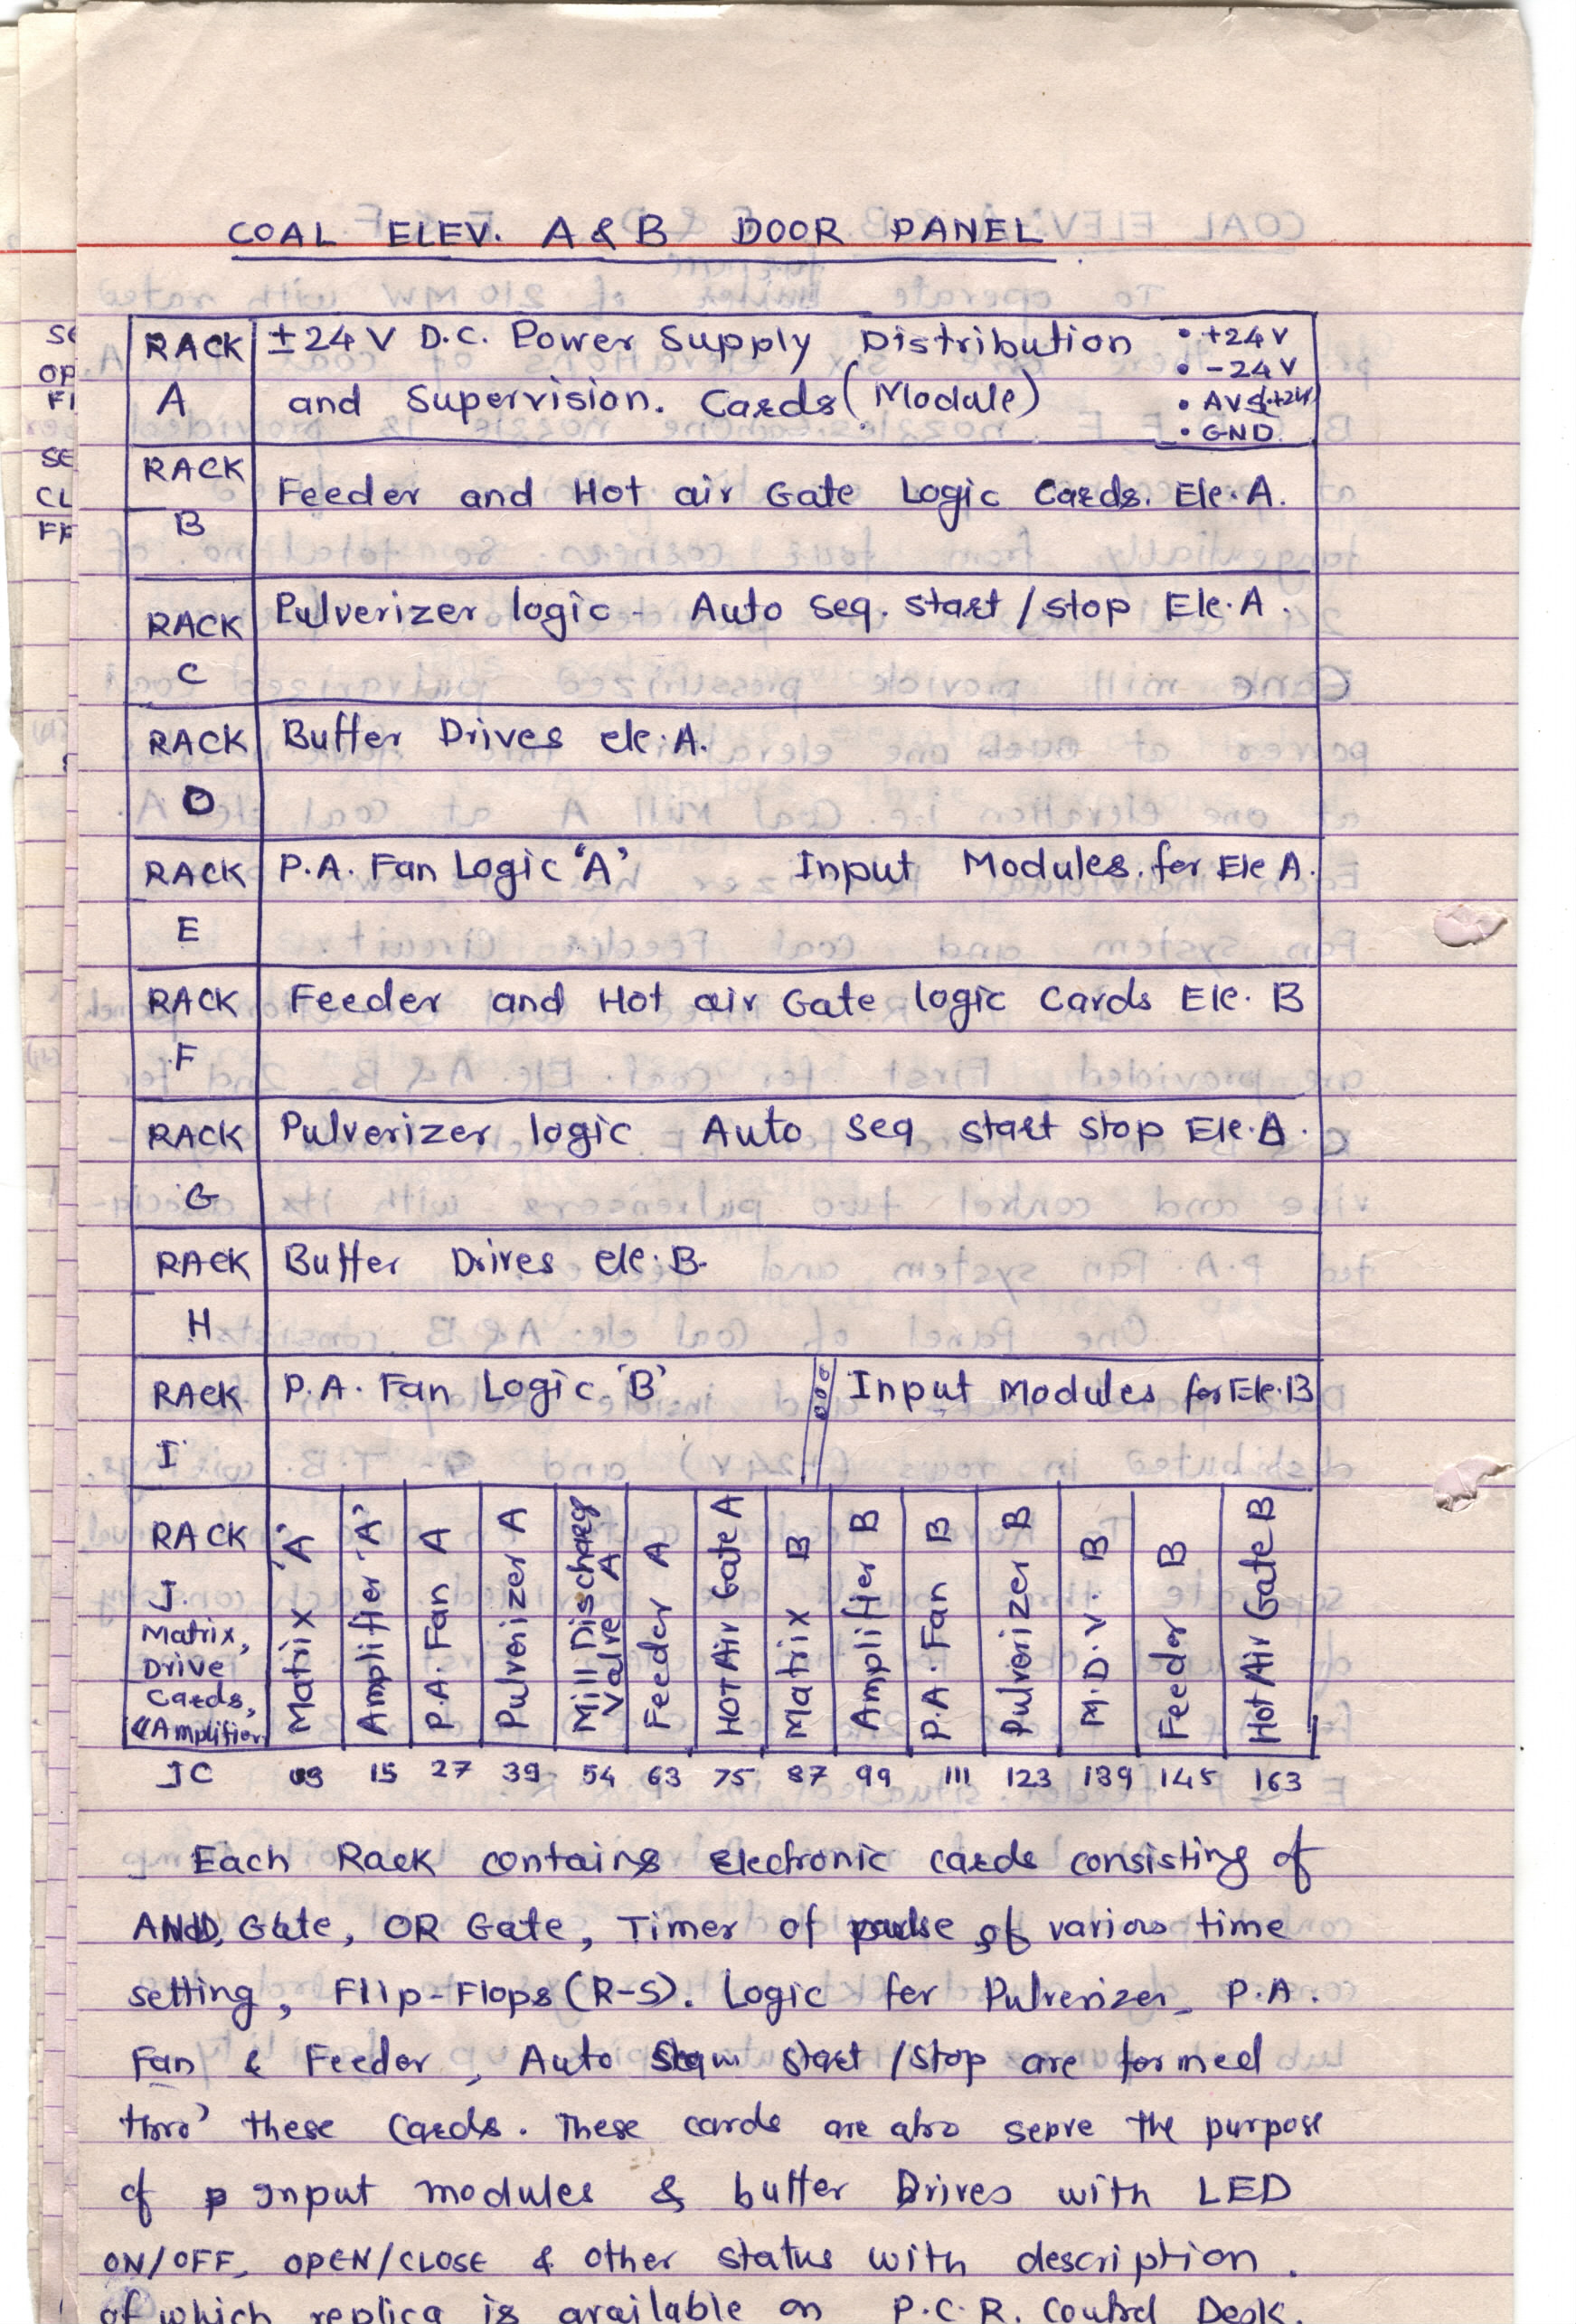 COAL ELEV. A & B DOOR PANEL
RACK A ±24 V D.C. Power Supply Distribution • +24 V
and Supervision. Cards (Module) • -24 V
• AVS(+24V)
• GND.
RACK B Feeder and Hot air Gate Logic Cards. Ele. A.
RACK C Pulverizer logic - Auto Seq. start / stop Ele. A.
RACK D Buffer Drives ele. A.
RACK E P.A. Fan Logic 'A' Input Modules. for Ele A.
RACK F Feeder and Hot air Gate logic Cards Ele. B
RACK G Pulverizer logic Auto seq start stop Ele.
RACK H Buffer Drives ele. B.
RACK I P.A. Fan Logic 'B' Input Modules for Ele. B
RACK
J.
Matrix,
Drive
Cards,
& Amplifier
Matrix 'A'
Amplifier 'A'
P.A. Fan A
Pulverizer A
Mill Discharg
Valve A
Feeder A
HOT Air Gate A
Matrix B
Amplifier B
P.A. Fan B
Pulverizer B
M.D.V. B
Feeder B
Hot Air Gate B
JC 03 15 27 39 54 63 75 87 99 111 123 139 145 163
Each Rack contains electronic cards consisting of
AND, Gate, OR Gate, Timer of pulse of various time
setting, Flip-Flops (R-S). Logic for Pulverizer, P.A.
Fan & Feeder, Auto start / stop are formed
thro' these Cards. These cards are also serve the purpose
of Input modules & buffer Drives with LED
ON/OFF, OPEN/CLOSE & other status with description.
of which replica is available on P.C.R. Control Desk.
SE
CL